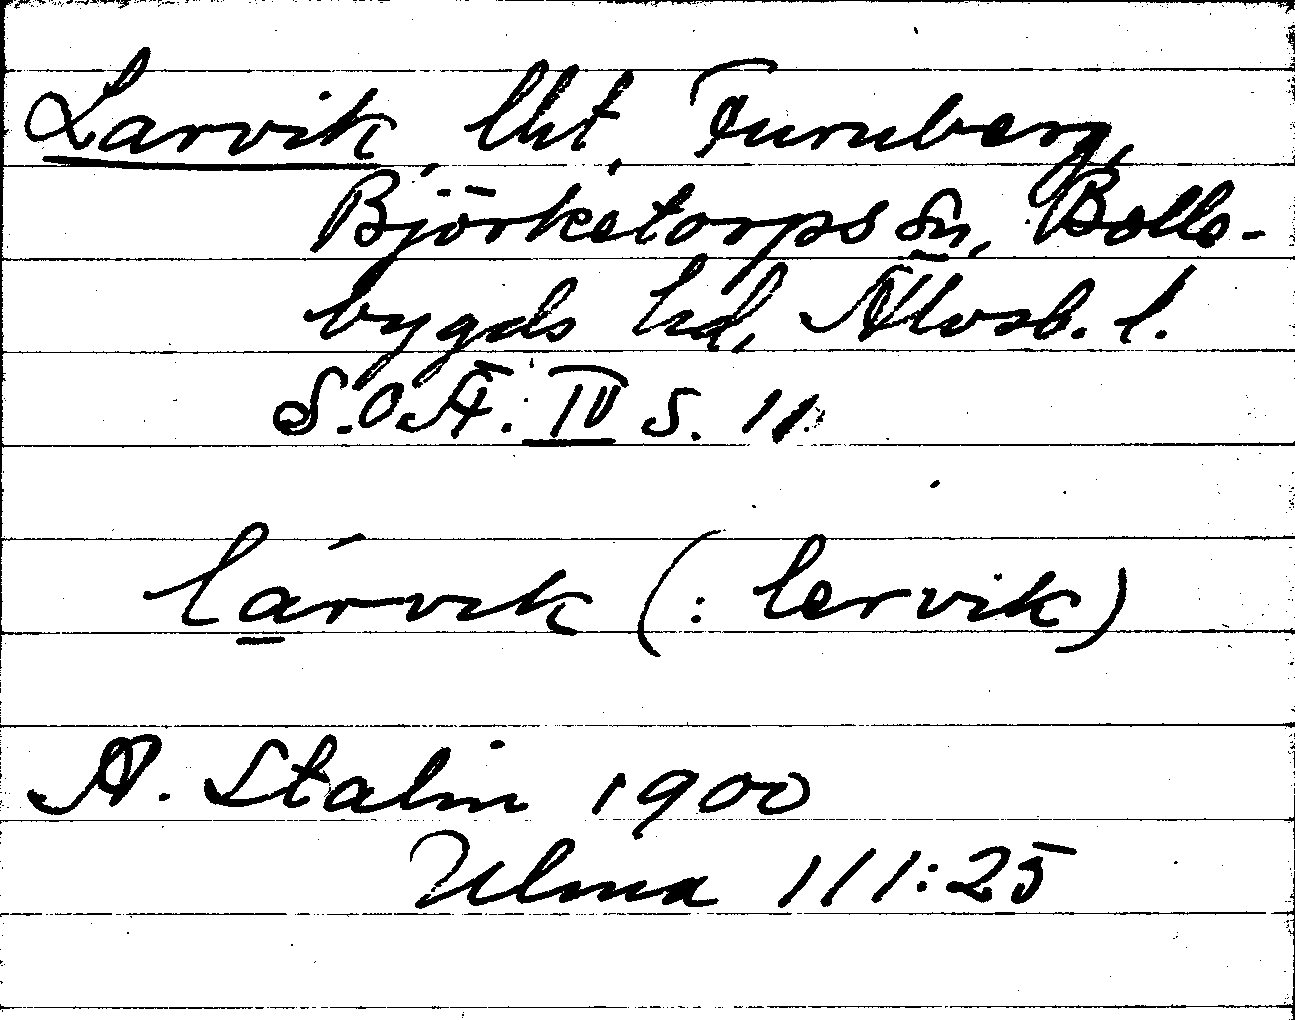 Larvik, lht, Furuberg,
Björketorps sn, Bolle-
bygds hd, Älvsb. l.
S.O.Ä. IV s. 11
lárvik (: lervik)
A. Stalin 1900
Ulma 111:25